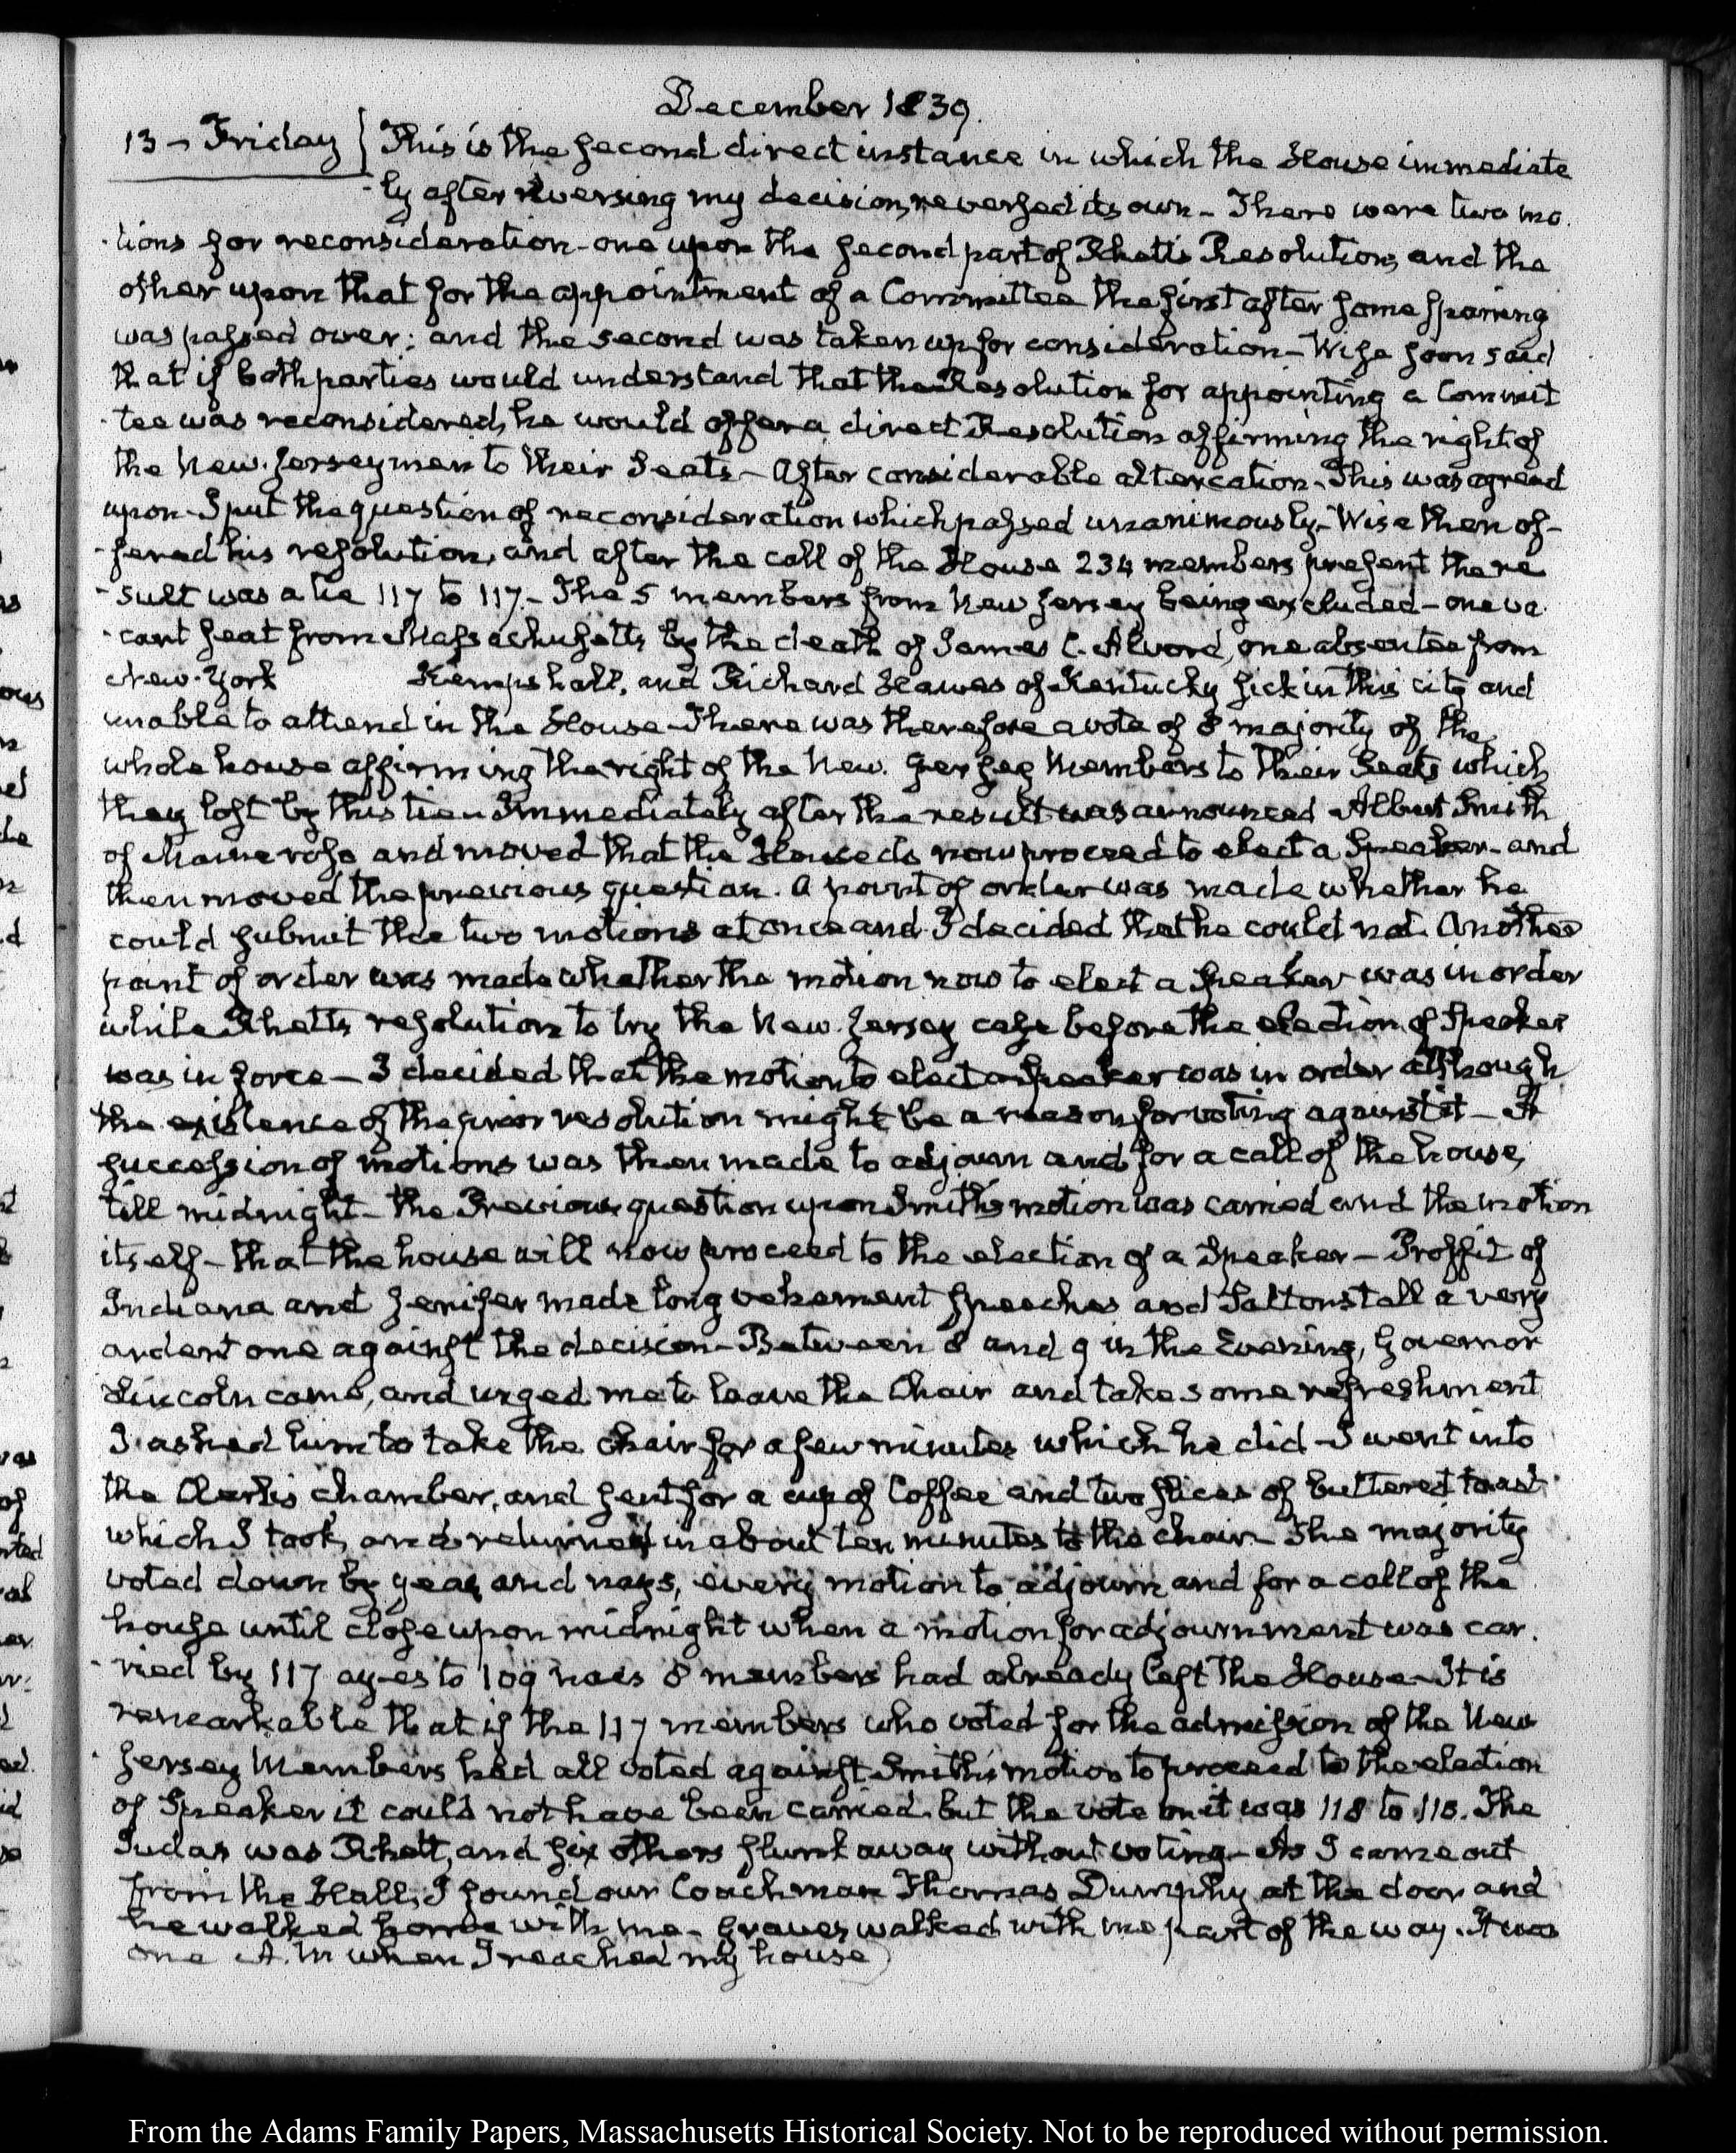 December 1839.
13 - Friday } This is the second direct instance in which the House immediate
-ly after reversing my decision, reversed its own - There were two mo.
-tions for reconsideration - one upon the second part of Rhett's Resolution, and the
other upon that for the appointment of a Committee the first after some sparring
was passed over; and the second was taken up for consideration - Wise soon said
that if both parties would understand that the Resolution for appointing a Commit
-tee was reconsidered, he would offer a direct Resolution affirming the right of
the New-Jerseymen to their Seats - After considerable altercation - This was agreed
upon - I put the question of reconsideration which passed unanimously - Wise then of-
-fered his resolution, and after the call of the House 234 members present the re
-sult was a tie 117 to 117. - The 5 members from New Jersey being excluded - one va
-cant seat from Massachusetts by the death of James C. Alvord, one absentee from
New-York Kempshall, and Richard Hawes of Kentucky sick in this city and
unable to attend in the House - There was therefore a vote of 8 majority of the
whole house affirming the right of the New. Jersey Members to their Seats which
they lost by this tie - Immediately after the result was announced Albert Smith
of Maine rose and moved that the House do now proceed to elect a Speaker - and
then moved the previous question. A point of order was made whether he
could submit the two motions at once and I decided that he could not. Another
point of order was made whether the motion now to elect a Speaker was in order
while Rhett's resolution to try the New-Jersey case before the election of Speaker
was in force - I decided that the motion to elect a Speaker was in order although
the existence of the prior resolution might be a reason for voting against it - A
succession of motions was then made to adjourn and for a call of the house,
till midnight - the Previous question upon Smith's motion was carried and the motion
itself - that the house will now proceed to the election of a Speaker - Proffit of
Indiana and Jenifer made long vehement speeches and Saltonstall a very
ardent one against the decision - Between 8 and 9 in the Evening, Governor
Lincoln came, and urged me to leave the Chair and take some refreshment
I asked him to take the chair for a few minutes which he did - I went into
the Clerk's chamber, and sent for a cup of Coffee and two slices of buttered toast
which I took, and returned in about ten minutes to the chair - The majority
voted down by yeas and nays, every motion to adjourn and for a call of the
house until close upon midnight when a motion for adjournment was car.
-ried by 117 ayes to 109 noes 8 members had already left the House - It is
remarkable that if the 117 members who voted for the admission of the New
Jersey Members had all voted against Smith's motion to proceed to the election
of Speaker it could not have been carried but the vote on it was 118 to 110. The
Judas was Rhett, and six others slunk away without voting - As I came out
from the Hall, I found our Coachman Thomas Dumphy at the door and
he walked home with me - Graves walked with me part of the way. It was
one A.M when I reached my house
From the Adams Family Papers, Massachusetts Historical Society. Not to be reproduced without permission.